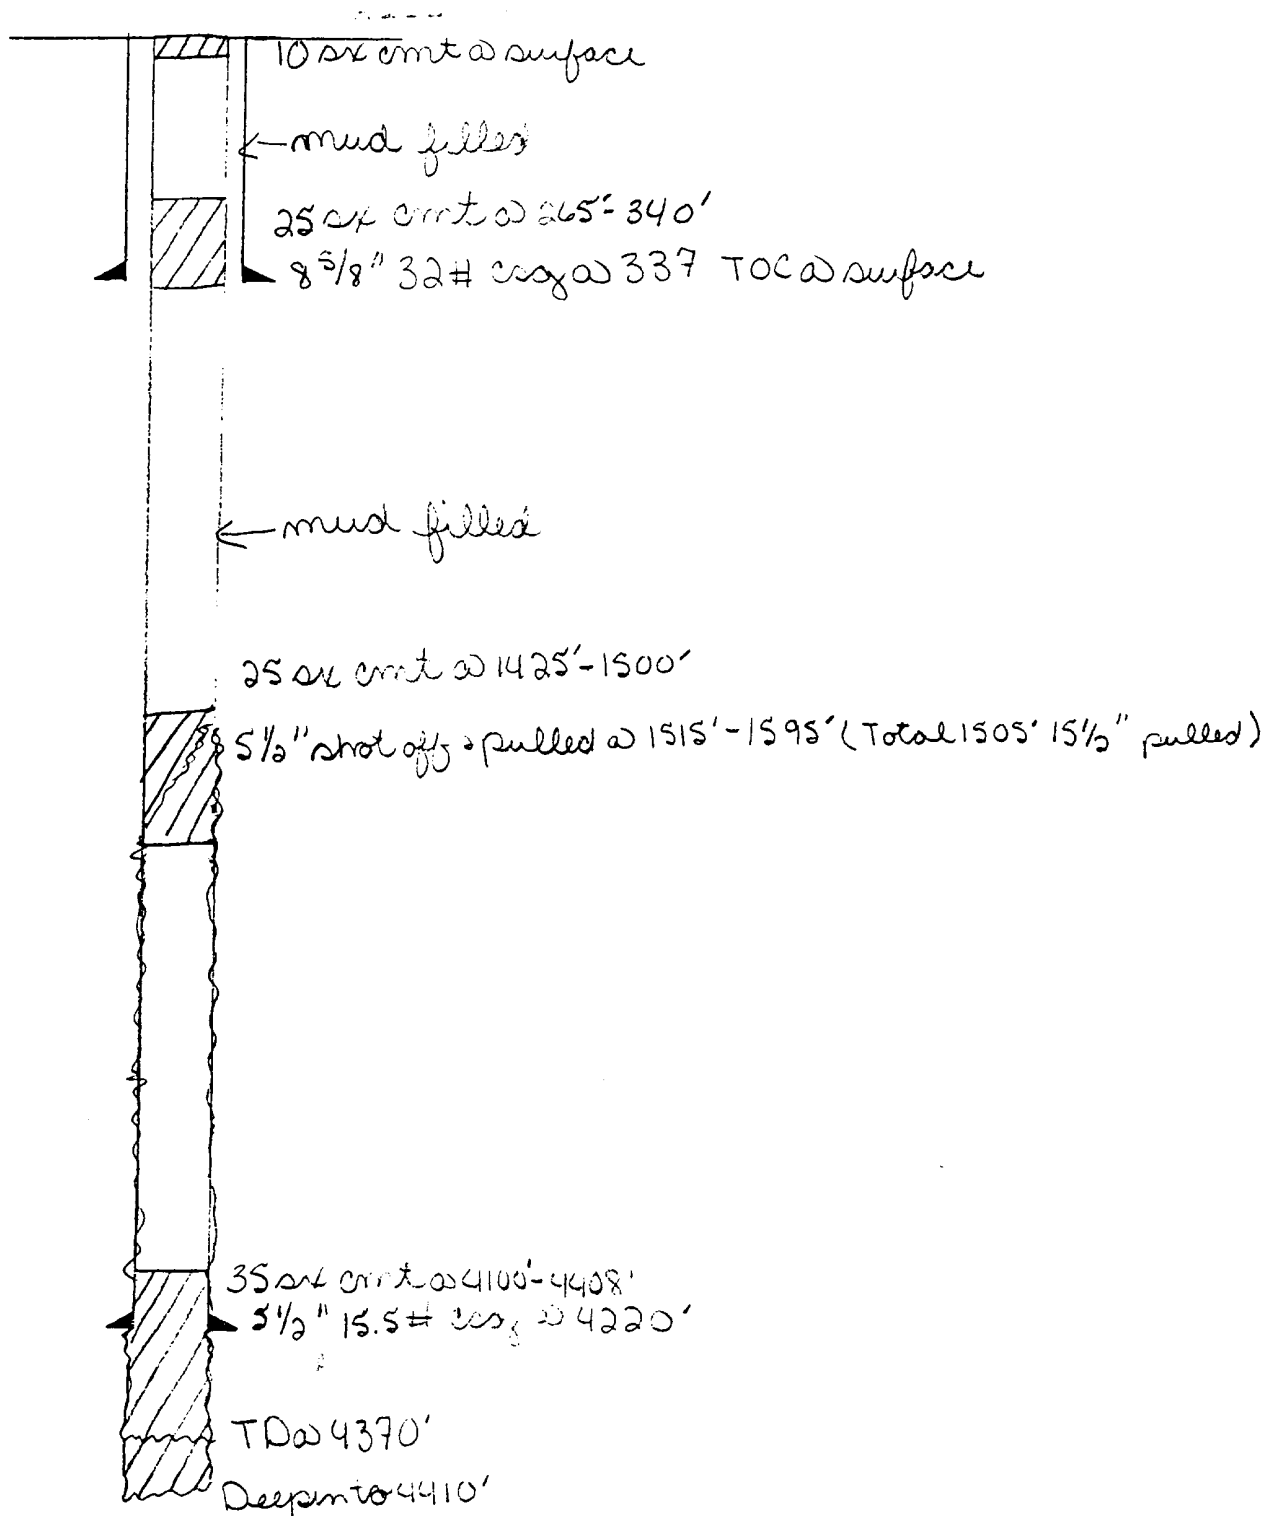 10 sx cmt @ surface
mud filled
25 sx cmt @ 265'-340'
8 5/8" 32# csg @ 337 TOC @ surface
mud filled
25 sx cmt @ 1425'-1500'
5 1/2" shot off & pulled @ 1515'-1595' (Total 1505' 15 1/2" pulled)
35 sx cmt @ 4100'-4408'
5 1/2" 15.5# csg @ 4220'
TD @ 4370'
Deepen to 4410'